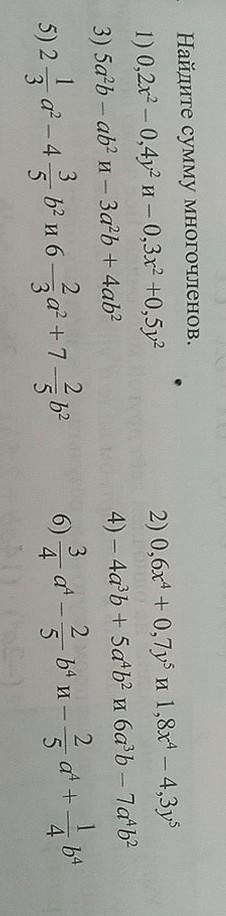 Найдите сумму многочленов.
1) 0,2x² – 0,4y² и – 0,3x² +0,5y²
2) 0,6x⁴ + 0,7y⁵ и 1,8x⁴ – 4,3y⁵
3) 5a²b – ab² и – 3a²b + 4ab²
4) – 4a³b + 5a⁴b² и 6a³b – 7a⁴b²
5) 2 1/3 a² – 4 3/5 b² и 6 2/3 a² + 7 2/5 b²
6) 3/4 a⁴ – 2/5 b⁴ и – 2/5 a⁴ + 1/4 b⁴